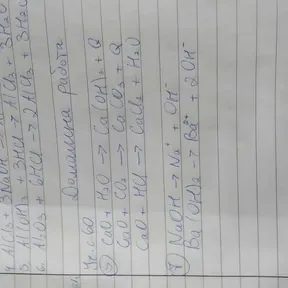 4. AlCl3 + 3NaOH →
5 Al(OH)3 + 3HCl → AlCl3 + 3H2O
6. Al2O3 + 6HCl → 2AlCl3 + 3H2O
Домашна работа
Уч. с 60
5 CaO + H2O → Ca(OH)2 + Q
CaO + CO2 → CaCO3 + Q
CaO + HCl → CaCl2 + H2O
7 NaOH → Na+ + OH-
Ba(OH)2 → Ba2+ + 2OH-